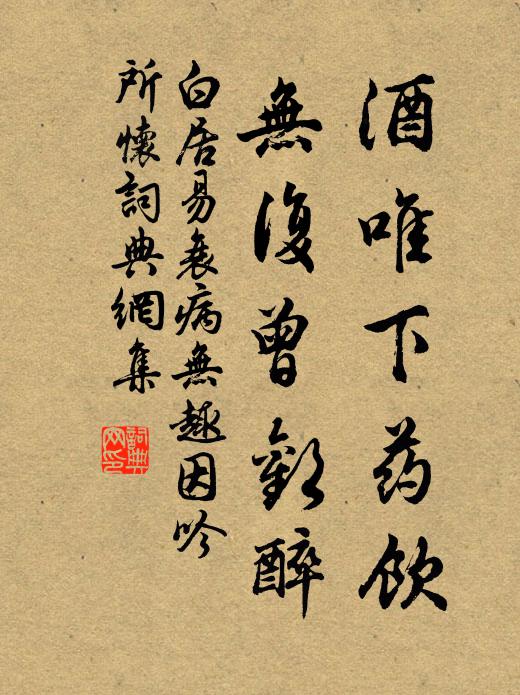 酒唯下药飲
無復曾歡醉
白居易衰病無趣因吟
所懷詞典網集
詞典網印